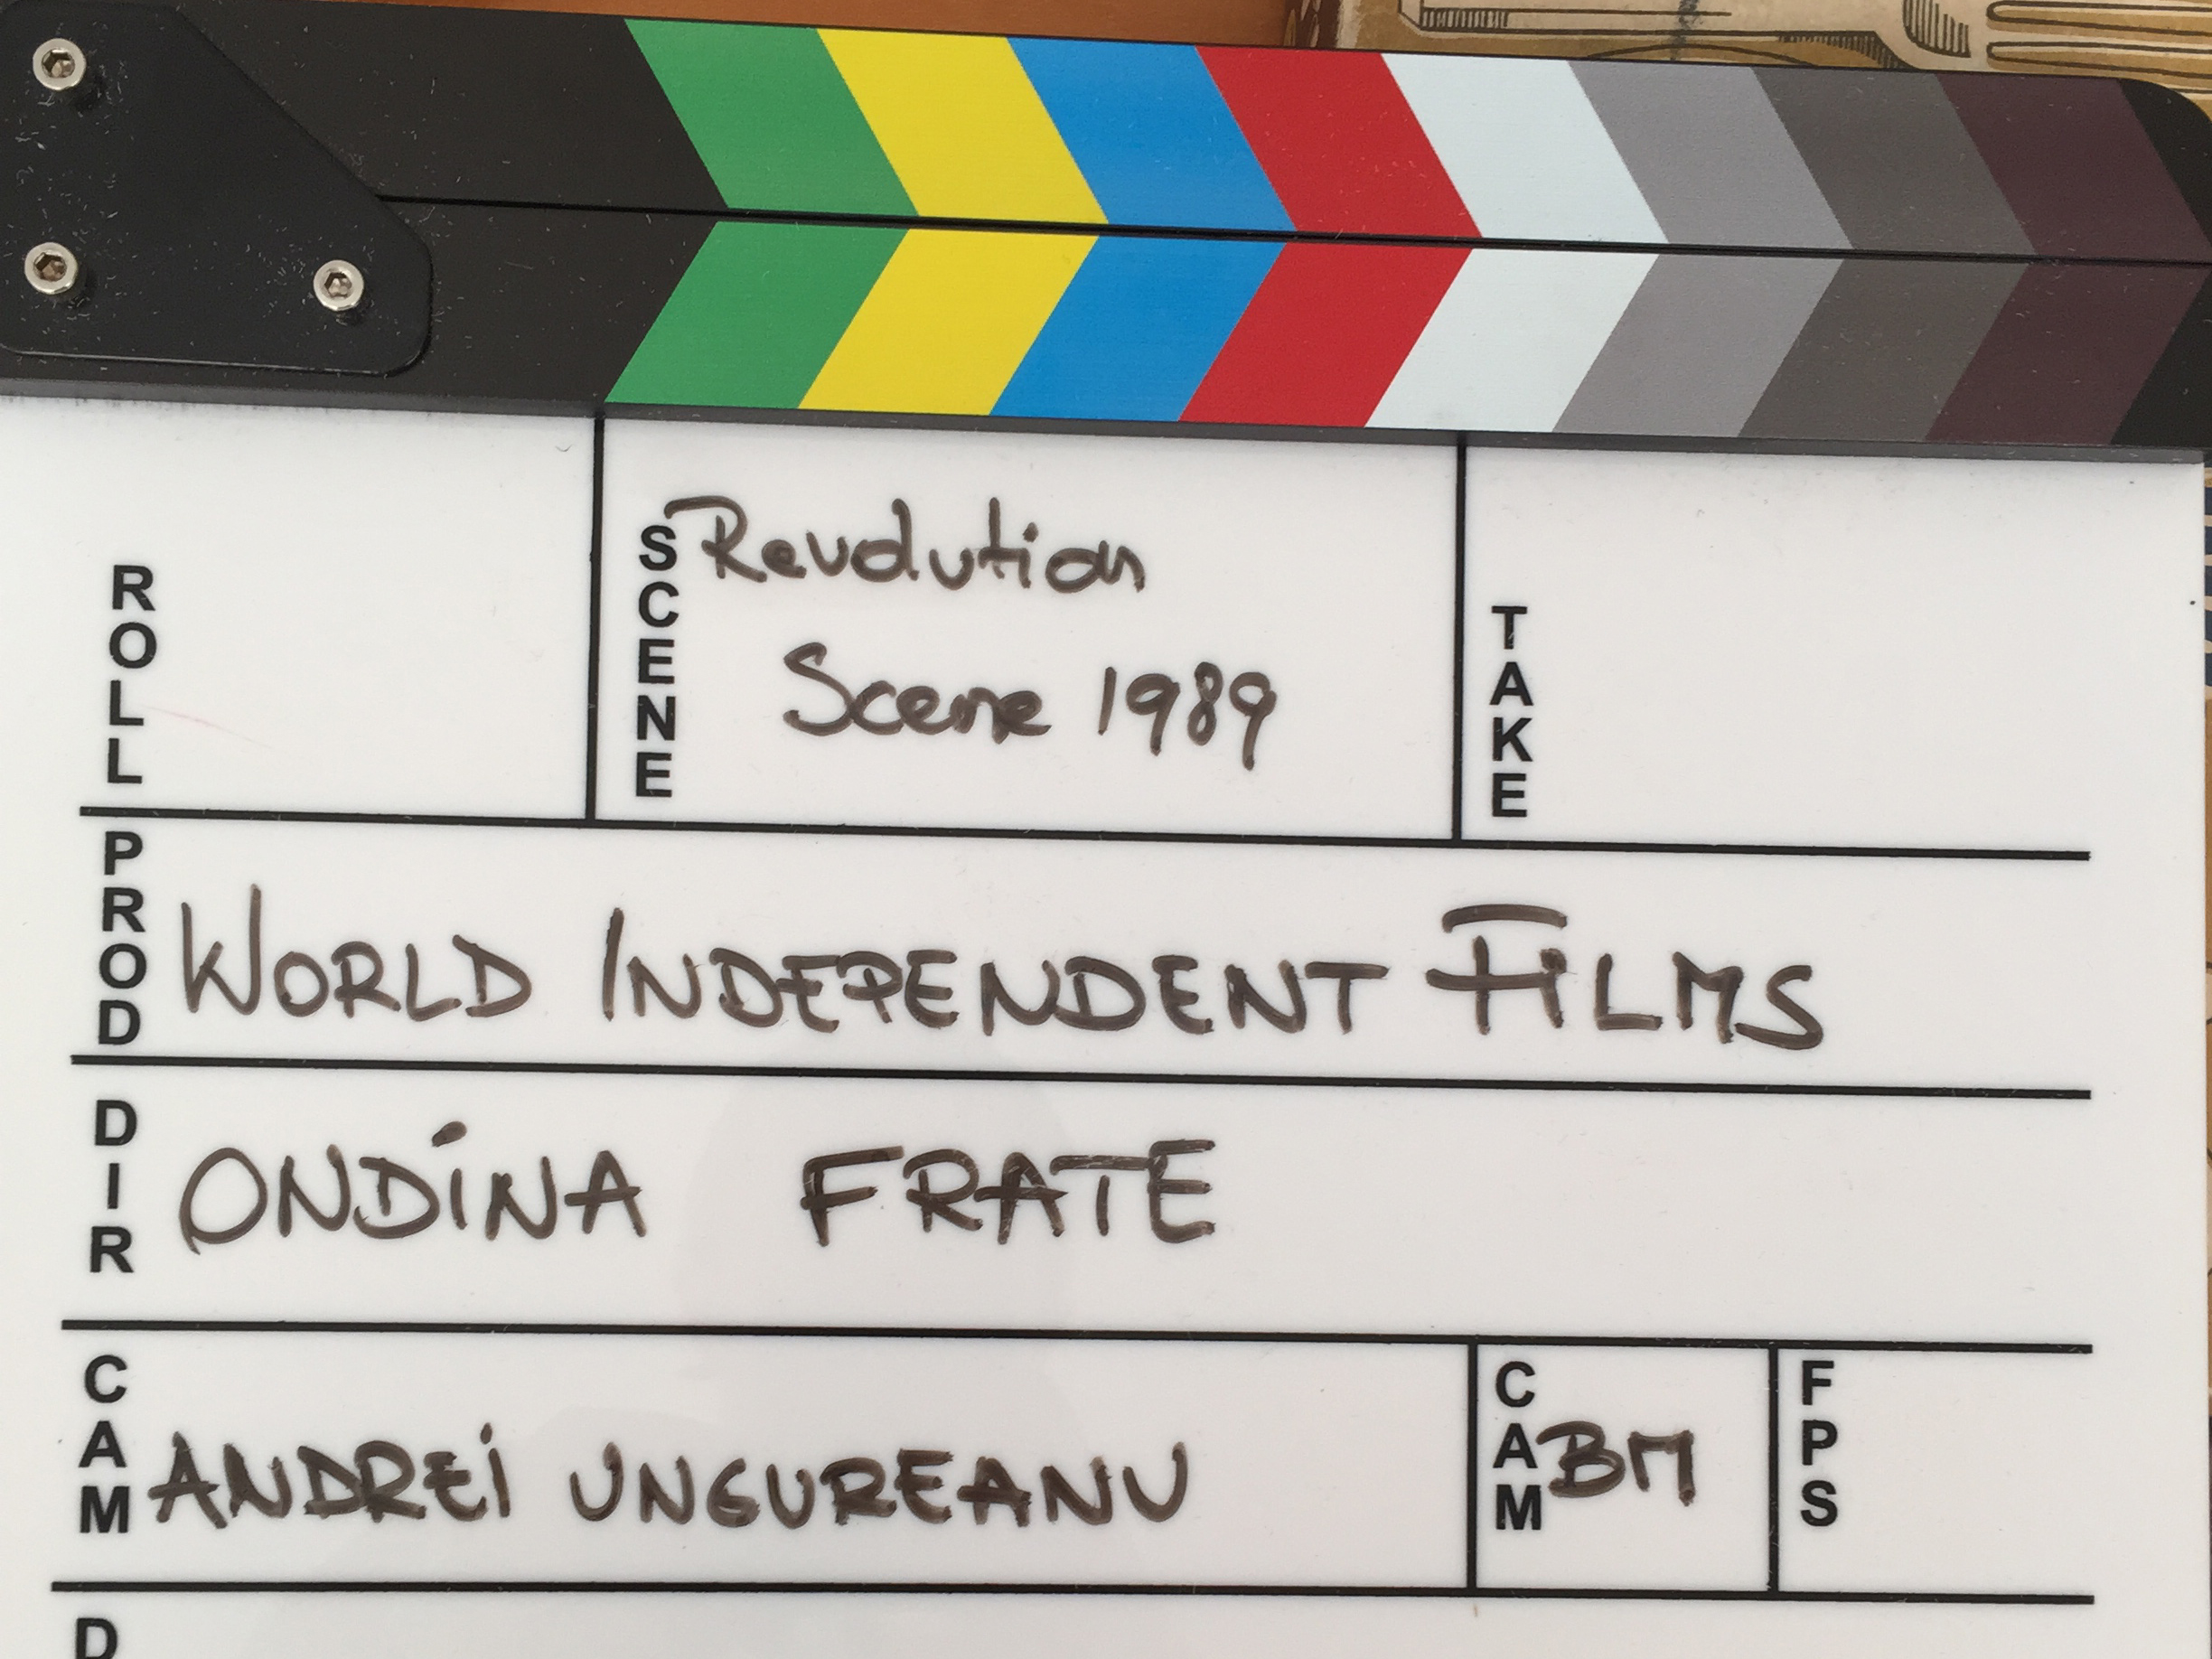 ROLL
SCENE Revolution
Scene 1989
TAKE
PROD WORLD INDEPENDENT FILMS
DIR ONDINA FRATE
CAM ANDREI UNGUREANU
CAM BM
FPS
D